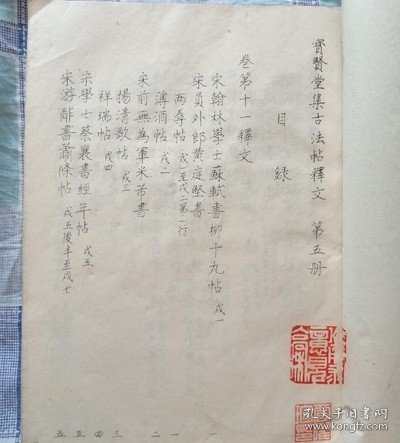 寶賢堂集古法帖釋文 第五册
目錄
卷第十一釋文
宋翰林學士蘇軾書柳十九帖 戊一 一
宋員外郎黄庭堅書
两辱帖 戊一至戊二第二行 一
薄酒帖 戊二 二
宋前無為軍米芾書
揚清歌帖 戊三 三
祥瑞帖 戊四 四
宋學士蔡襄書經年帖 戊五 五
宋游酢書蕭條帖 戊五後半至戊七 五
孔夫子旧书网